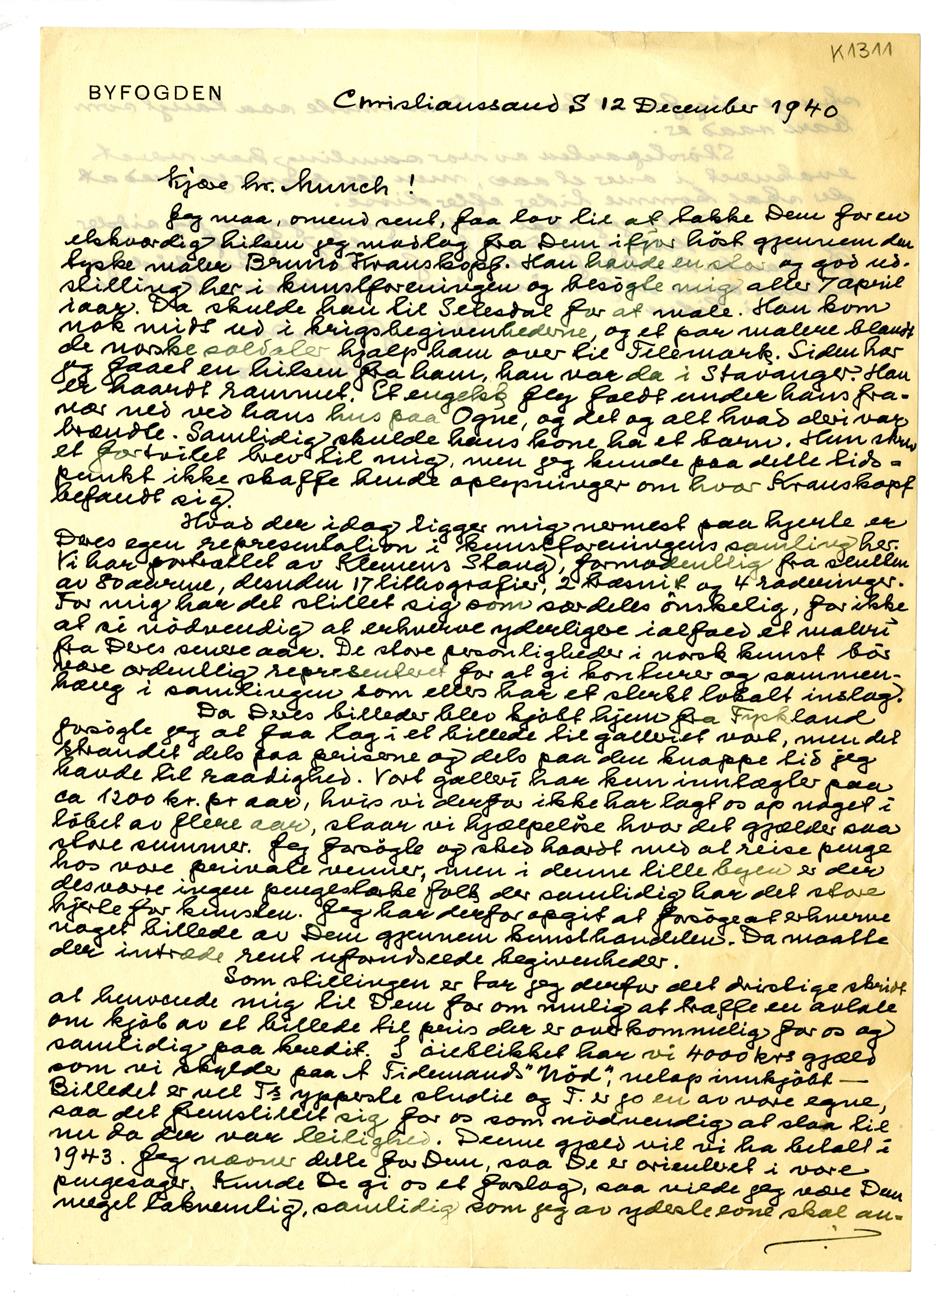 K1311
BYFOGDEN
Christianssand S 12 December 1940
Kjære hr. Munch!
Jeg maa, omend sent, faa lov til at takke Dem for en
elskværdig hilsen jeg modtog fra Dem ifjor höst gjennem den
tyske maler Bruno Krauskopf. Han havde en stor og god ud-
stilling her i kunstforeningen og besögte mig aller 7 april
iaar. Da skulde han til Setesdal for at male. Han kom
nok midt ud i krigsbegivenhederne, og et par malere blandt
de norske soldater hjalp ham over til Telemark. Siden har
jeg faaet en hilsen fra ham, han var da i Stavanger. Han
er haardt rammet. Et engelsk fly faldt under hans fra-
vær ned ved hans hus paa Ogne, og det og alt hvad deri var
brændte. Samtidig skulde hans kone ha et barn. Hun skrev
et fortvilet brev til mig, men jeg kunde paa dette tids-
punkt ikke skaffe hende oplysninger om hvor Krauskopf
befandt sig.
Hvad der idag ligger mig nermest paa hjerte er
Deres egen representation i kunstforeningens samling her.
Vi har portrættet av Klemens Stang, formodentlig fra slutten
av 80 aarene, desuden 17 lithografier, 2 træsnit og 4 raderinger.
For mig har det stillet sig som særdeles önskelig, for ikke
at si nödvendig at erhverve yderligere ialfald et maleri
fra Deres senere aar. De store personligheder i norsk kunst bör
være ordentlig representeret for at gi konturer og sammen-
hæng i samlingen som ellers har et sterkt lokalt inslag.
Da Deres billeder blev kjöbt hjem fra Tyskland
forsögte jeg at faa tag i et billede til galleriet vort, men det
strandet dels paa priserne og dels paa den knappe tid jeg
havde til raadighed. Vort galleri har kun inntægter paa
ca 1200 kr. pr aar, hvis vi derfor ikke har lagt os op noget i
löbet av flere aar, staar vi hjælpelöse hvor det gjælder saa
store summer. Jeg forsögte og sled haardt med at reise penge
hos vore private venner, men i denne lille byen er der
desværre ingen pengesterke folk der samtidig har det store
hjerte for kunsten. Jeg har derfor opgit at forsöge at erhverve
noget billede av Dem gjennem kunsthandelen. Da maatte
der intræde rent uforudseede begivenheder.
Som stillingen er tar jeg derfor det dristige skridt
at henvende mig til Dem for om mulig at træffe en avtale
om kjöb av et billede til pris der er overkommelig for os og
samtidig paa kredit. I öieblikket har vi 4000 krs gjæld
som vi skylder paa A Tidemands "Nöd", netop innkjöbt —
Billedet er vel Ts ypperste studie og T. er jo en av vore egne,
saa det fremstillet sig for os som nödvendig at slaa til
nu da der var leilighed. Denne gjæld vil vi ha betalt i
1943. Jeg nævner dette for Dem, saa De er orienteret i vore
pengesager. Kunde De gi os et forslag, saa vilde jeg være Dem
meget taknemlig, samtidig som jeg av yderste evne skal an-